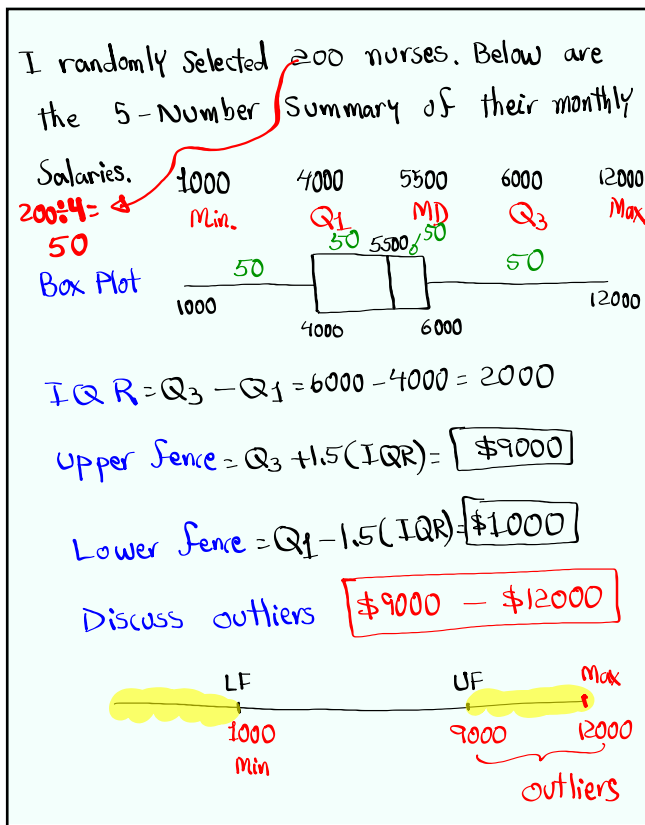 I randomly selected 200 nurses. Below are
the 5-Number Summary of their monthly
Salaries.
1000 4000 5500 6000 12000
200÷4= Min. Q1 MD Q3 Max
50
50 50 5500 50 50
Box Plot
1000 12000
4000 6000
IQR = Q3 - Q1 = 6000 - 4000 = 2000
Upper fence = Q3 + 1.5(IQR) = $9000
Lower fence = Q1 - 1.5(IQR) = $1000
Discuss outliers $9000 - $12000
LF UF Max
1000 9000 12000
Min
outliers